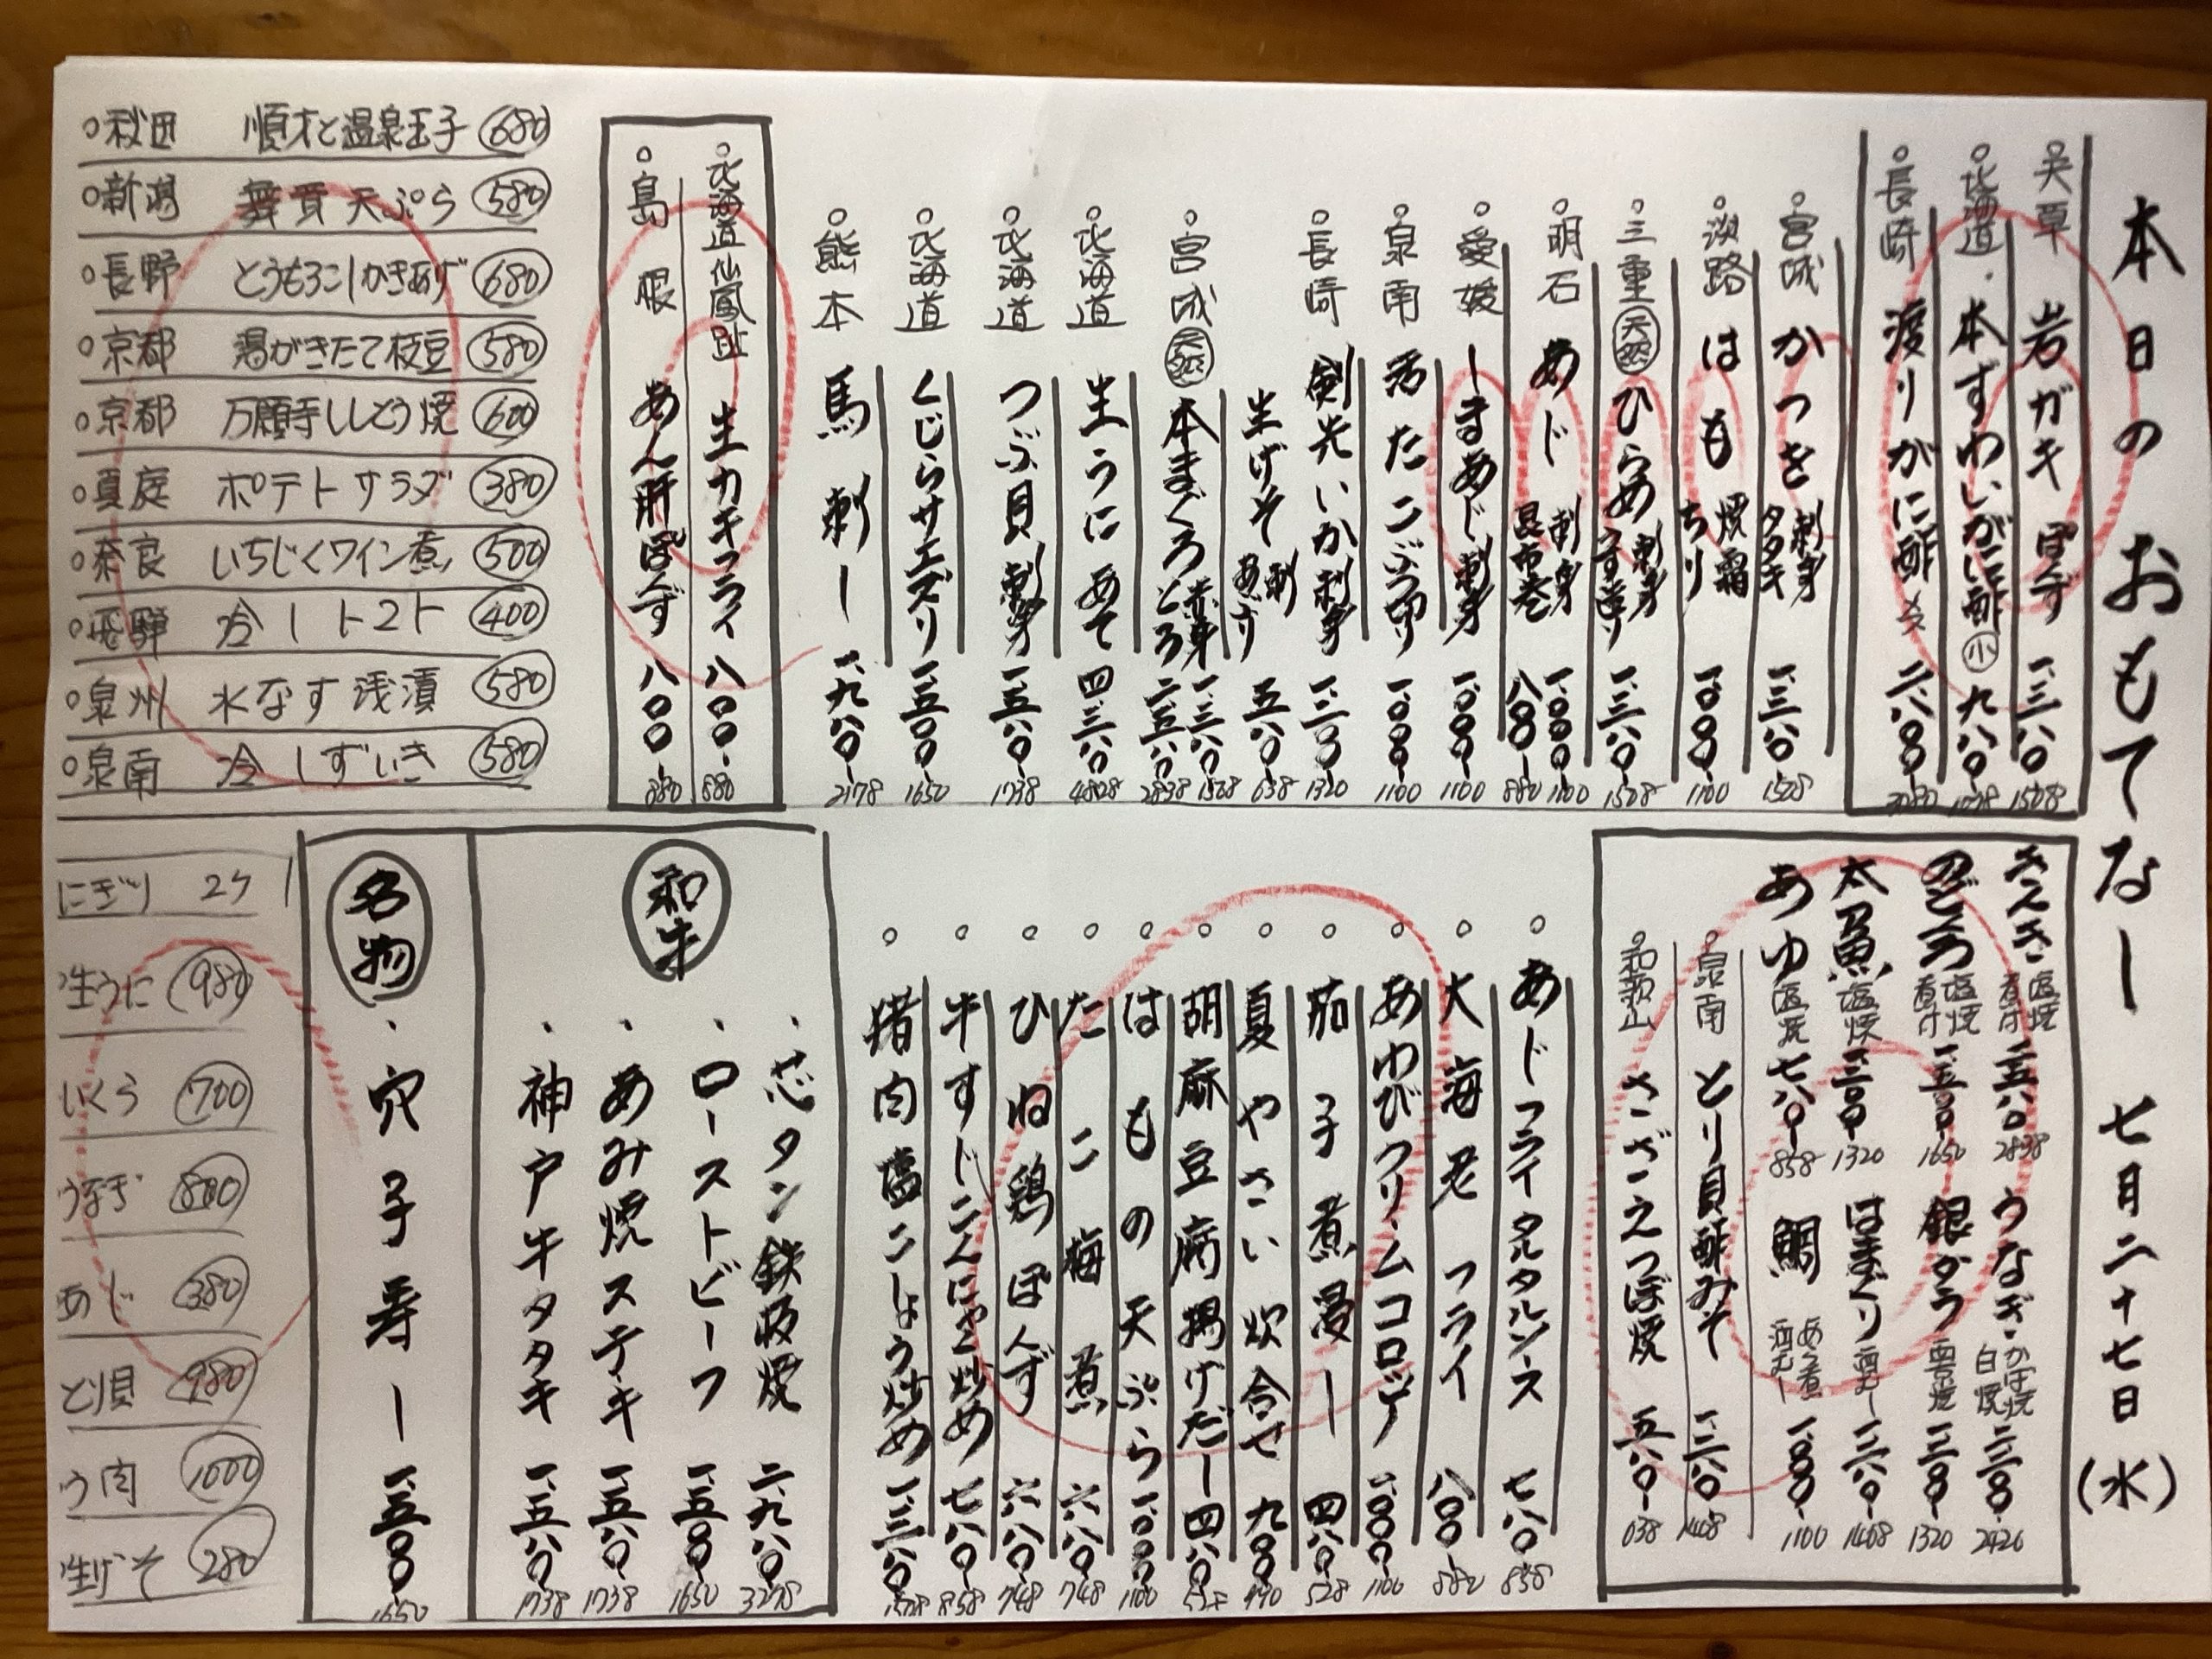 本日のおもてなし 七月二十七日(水)
天草 岩ガキ ぽんず 一、三八〇 1518
北海道 本ずわいがに酢 小 九八〇 1078
長崎 渡りがに酢 メス 二、八〇〇 3080
宮城 かつを 刺身 タタキ 一、三八〇 1518
淡路 はも 焼霜 ちり 一、〇〇〇 1100
三重 天然 ひらめ 刺身 うす造り 一、三八〇 1518
明石 あじ 刺身 一、〇〇〇 1100
昆布巻 八〇〇 880
愛媛 しまあじ 刺身 一、〇〇〇 1100
泉南 活たこぶつ切り 一、〇〇〇 1100
長崎 剣先いか刺身 一、二〇〇 1320
生げそ 刺 あぶり 五八〇 638
宮城 天然 本まぐろ 赤身 一、三八〇 1518
とろ 二、五八〇 2838
北海道 生うに あて 四、三八〇 4818
北海道 つぶ貝 刺身 一、五八〇 1738
北海道 くじらサエズリ 一、五〇〇 1650
熊本 馬刺し 一、九八〇 2178
北海道仙鳳趾 生カキフライ 八〇〇 880
島根 あん肝ぽんず 八〇〇 880
秋田 順才と温泉玉子 680
新潟 舞茸天ぷら 580
長野 とうもろこしかきあげ 680
京都 湯がきたて枝豆 580
京都 万願寺ししとう焼 600
真庭 ポテトサラダ 380
奈良 いちじくワイン煮 500
飛騨 冷しトマト 400
泉州 水なす浅漬 580
泉南 冷しずいき 580
きんき 塩焼 煮付 二、五八〇 2838
うなぎ かば焼 白焼 二、二〇〇 2420
のどぐろ 塩焼 煮付 一、五〇〇 1650
銀だら 西京焼 一、二〇〇 1320
太刀魚 塩焼 一、二〇〇 1320
はまぐり 酒むし 一、二八〇 1408
あゆ 塩焼 七八〇 858
鯛 あら煮 酒むし 一、〇〇〇 1100
泉南 とり貝酢みそ 一、二八〇 1408
和歌山 さざえつぼ焼 五八〇 638
あじフライタルタルソース 七八〇 858
大海老フライ 八〇〇 880
あわびクリームコロッケ 一、〇〇〇 1100
茄子煮浸し 四八〇 528
夏やさい炊合せ 九〇〇 990
胡麻豆腐揚げだし 四八〇 528
はもの天ぷら 一、〇〇〇 1100
たこ梅煮 六八〇 748
ひね鶏ぽんず 六八〇 748
牛すじこんにゃく炒め 七八〇 858
猪肉塩こしょう炒め 一、三八〇 1518
和牛
芯タン鉄板焼 二、九八〇 3278
ローストビーフ 一、五〇〇 1650
あみ焼ステーキ 一、五八〇 1738
神戸牛タタキ 一、五八〇 1738
名物
穴子寿し 一、五〇〇 1650
にぎり 2ケ
生うに 980
いくら 700
うなぎ 800
あじ 380
とり貝 980
う肉 1000
生げそ 280